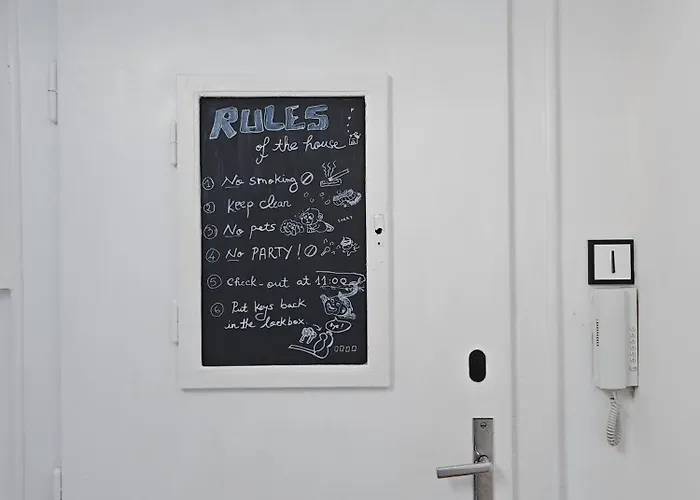 RULES
of the house
1 No smoking
2 Keep clean
3 No pets
4 No PARTY!
5 Check-out at 11:00
6 Put keys back
in the lockbox.
Bye!